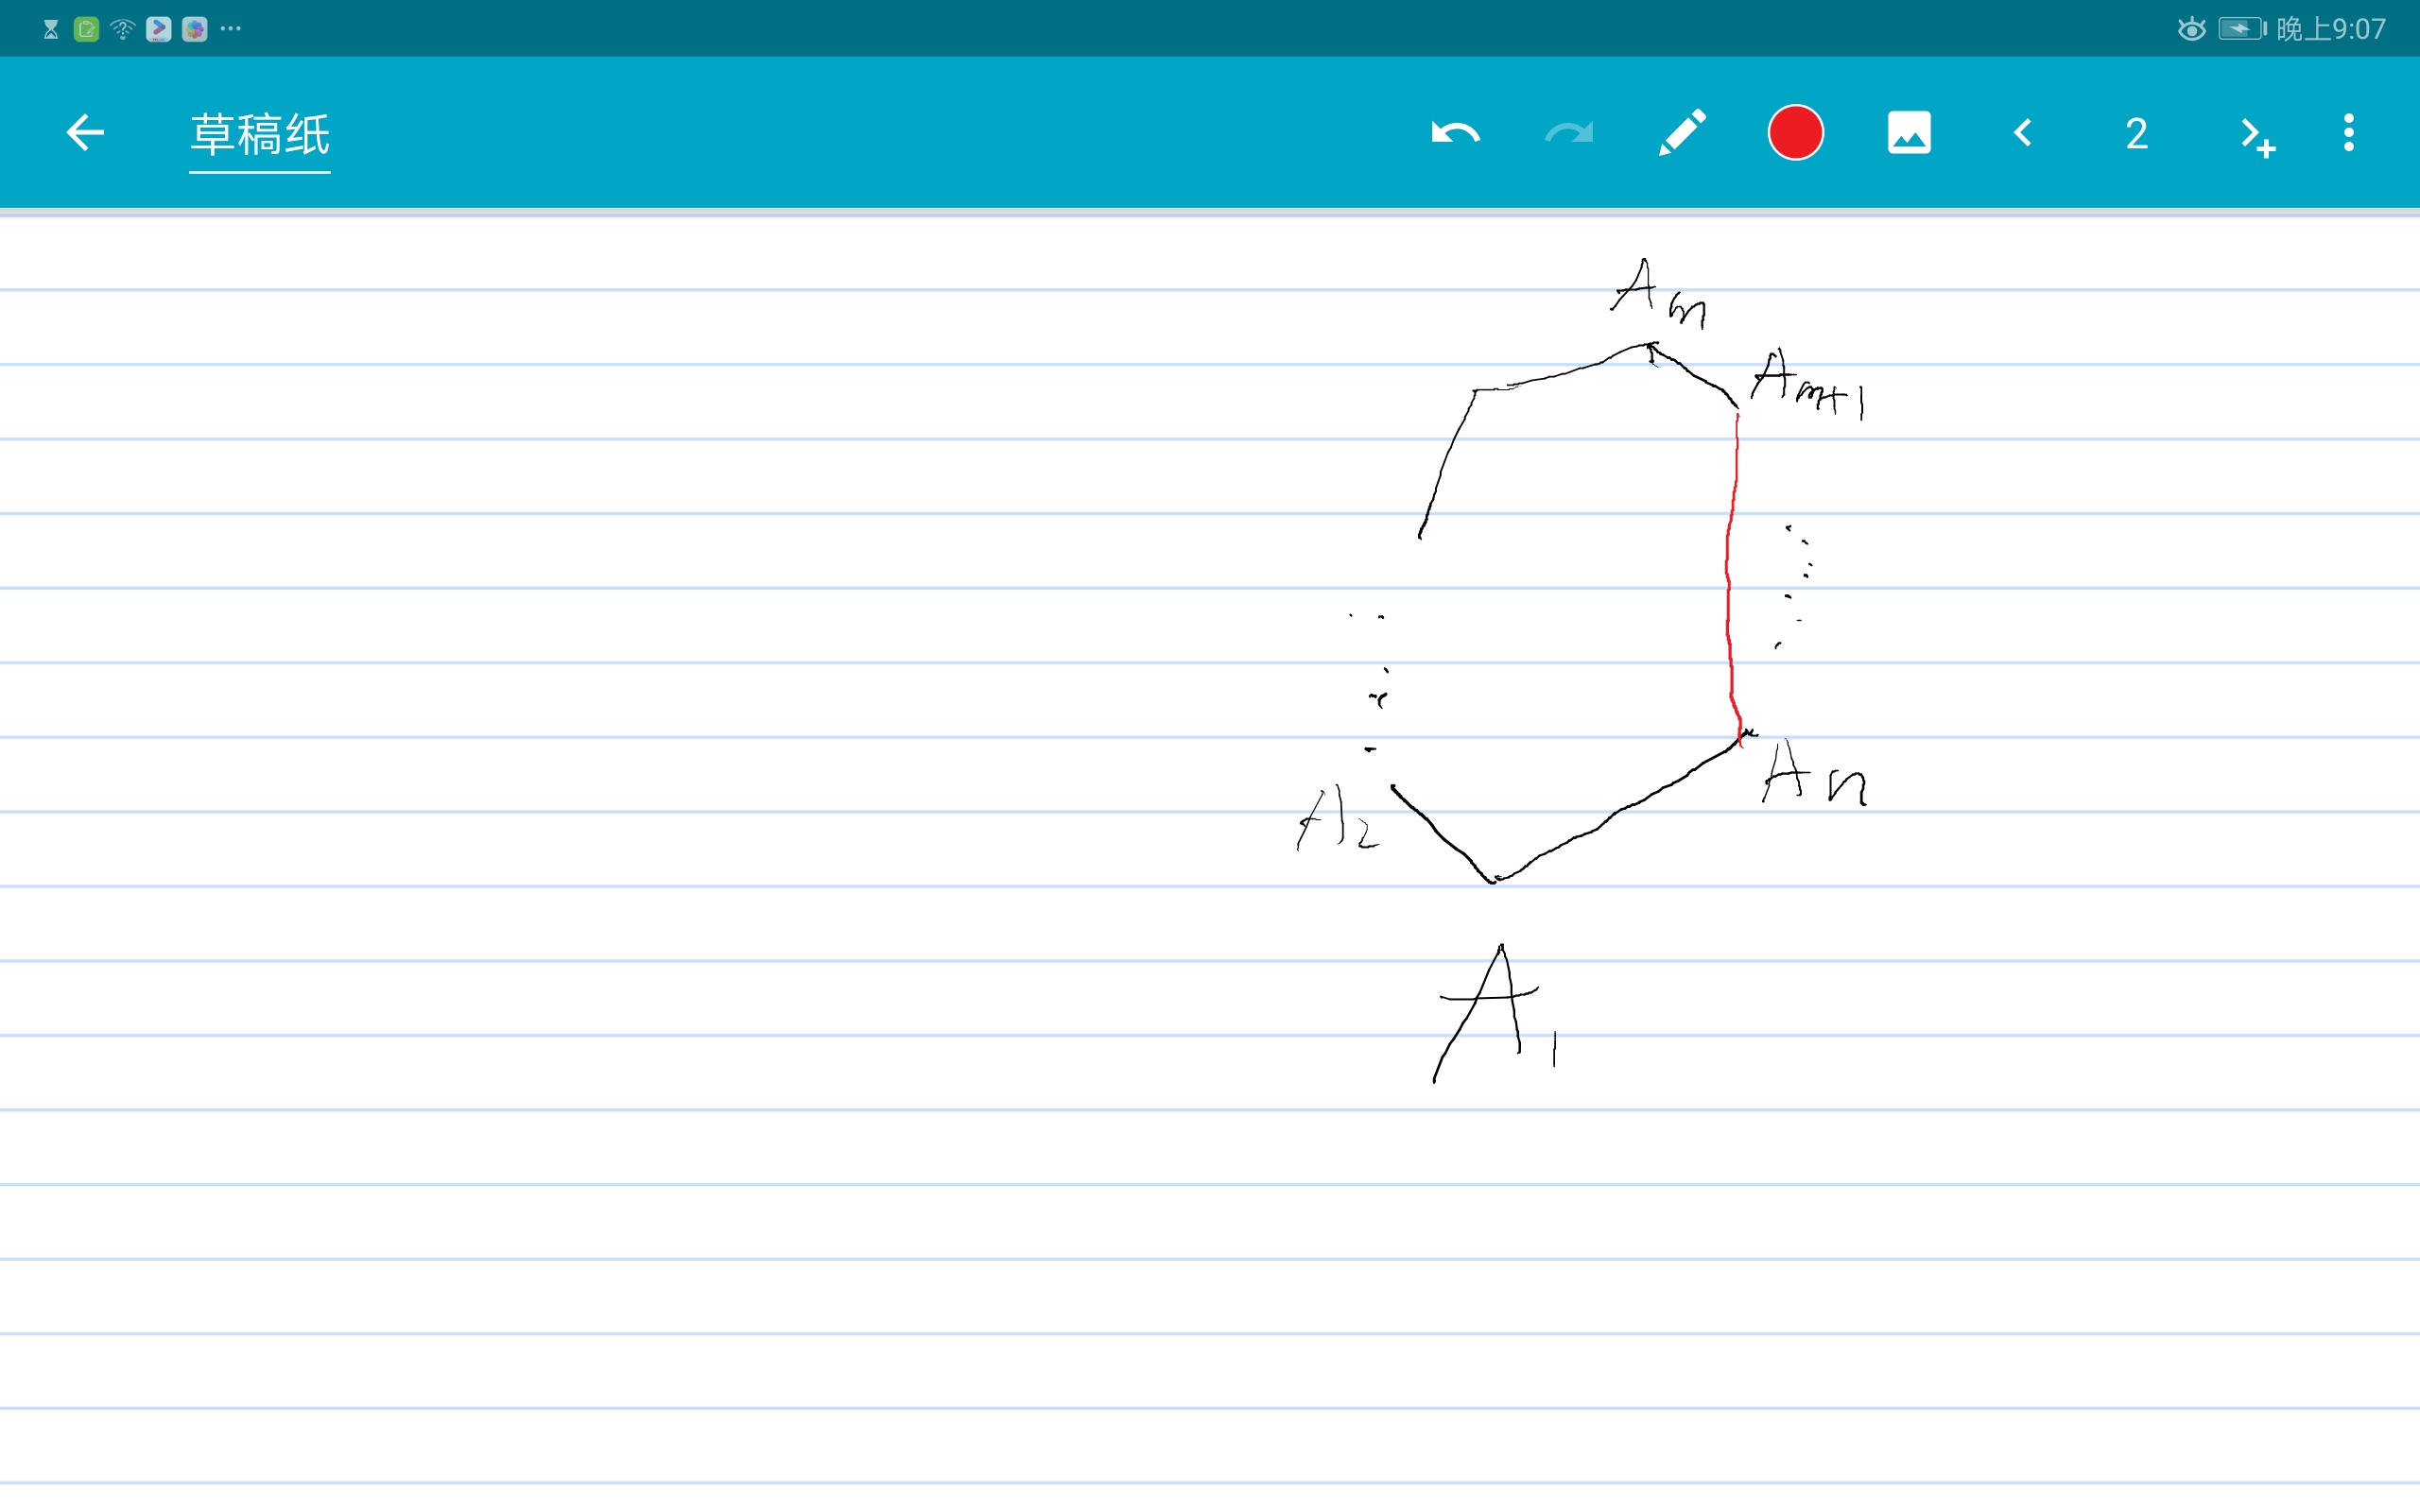 晚上9:07
草稿纸
2
Am
Am+1
An
A2
A1